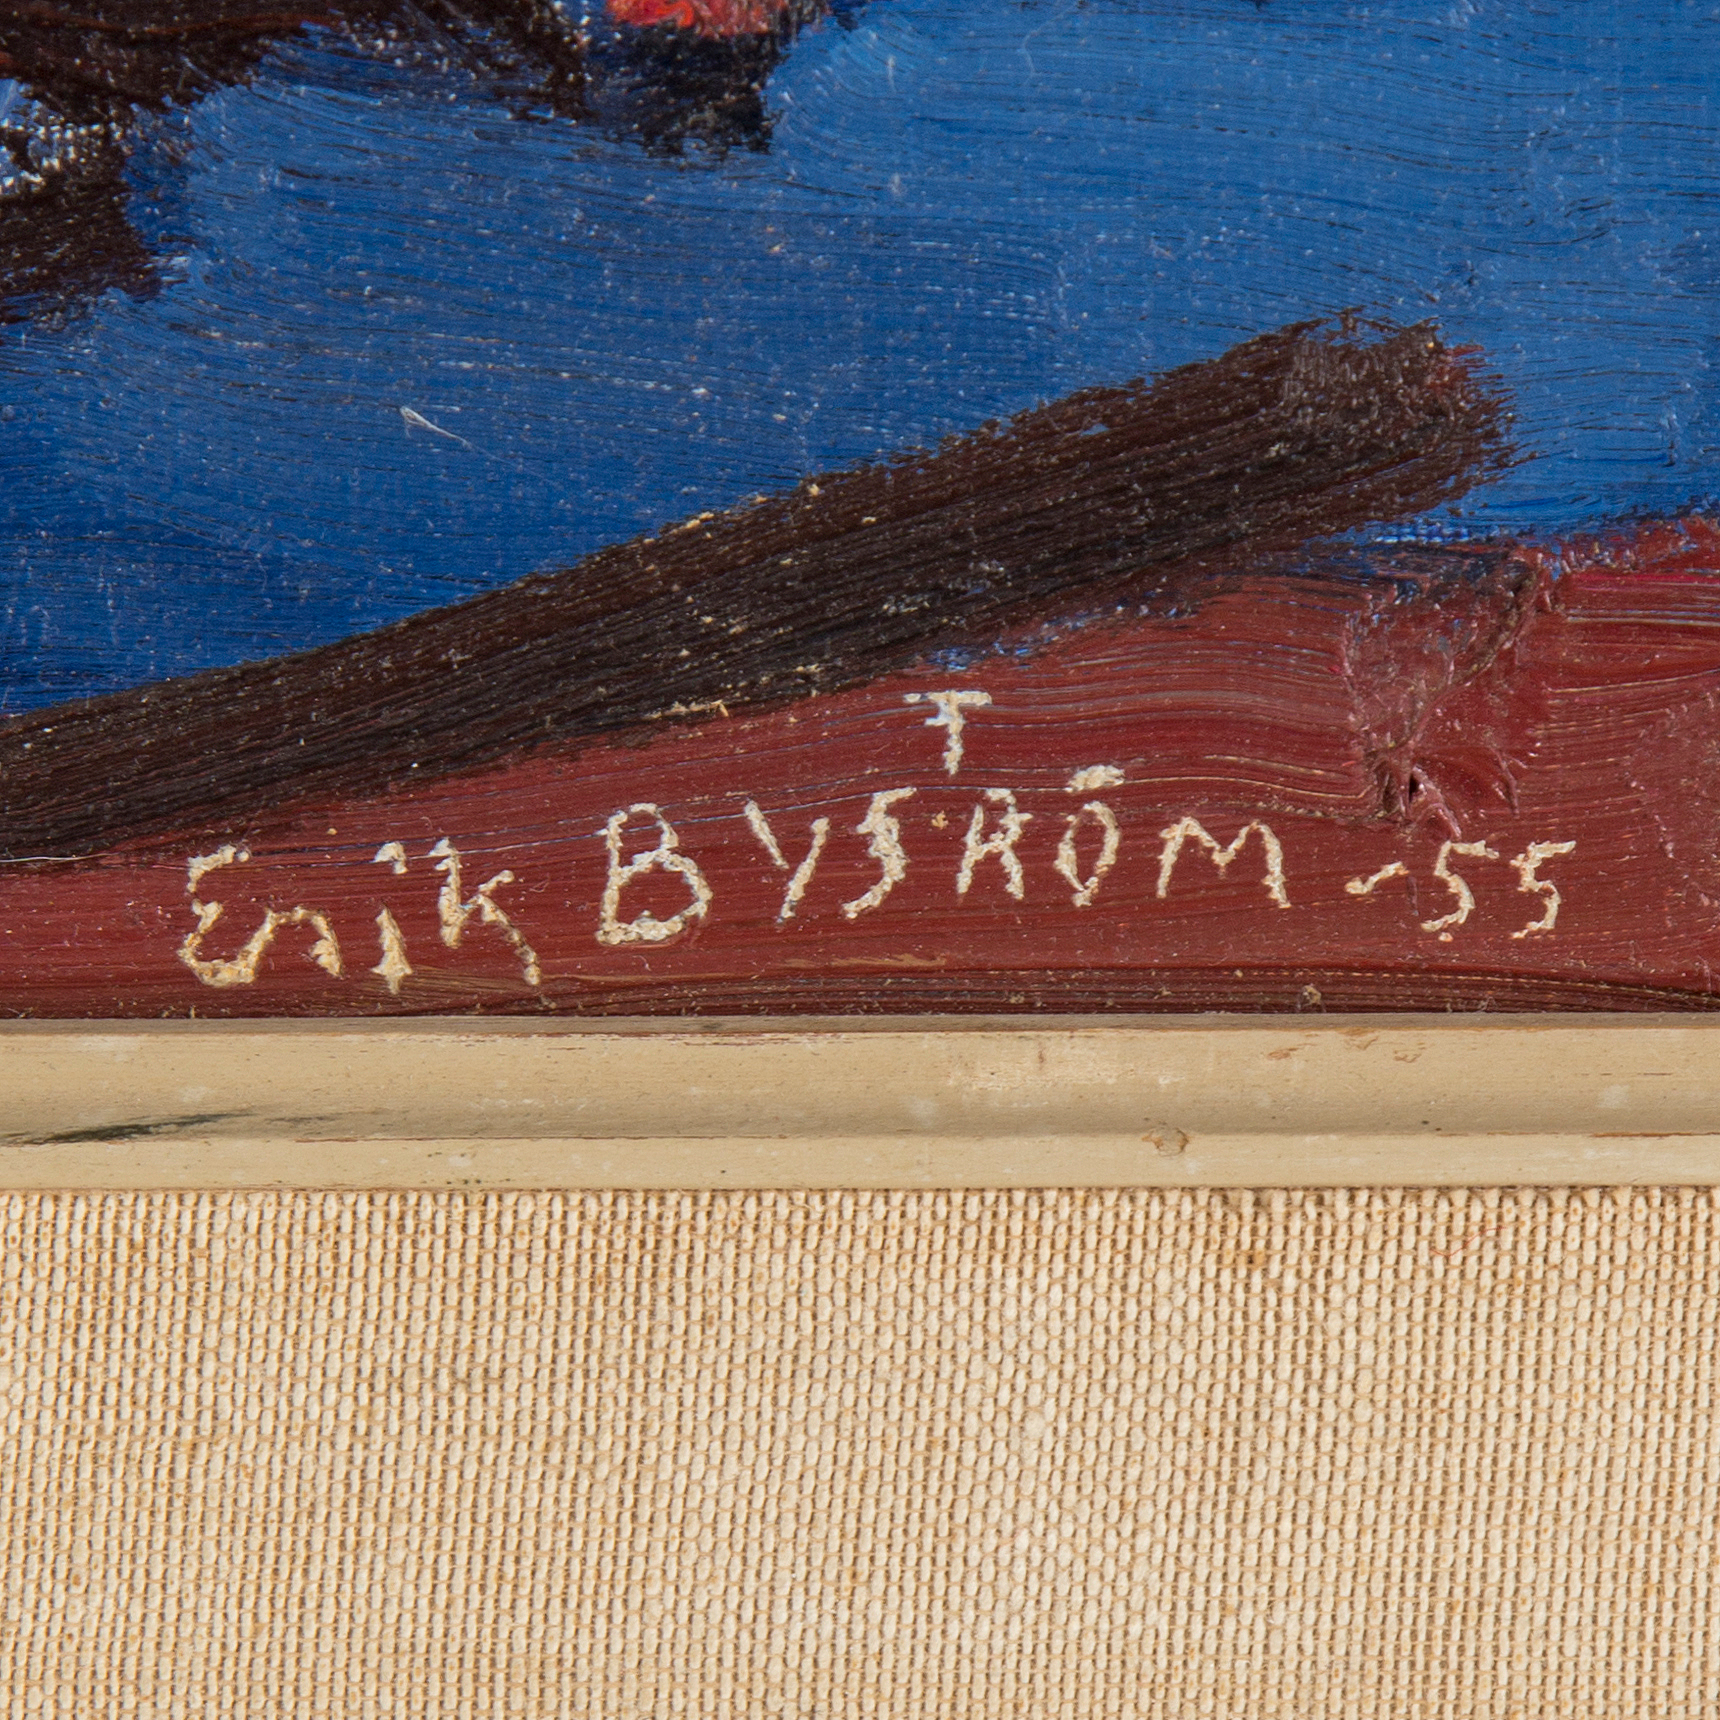 Erik BYSTRÖM -55